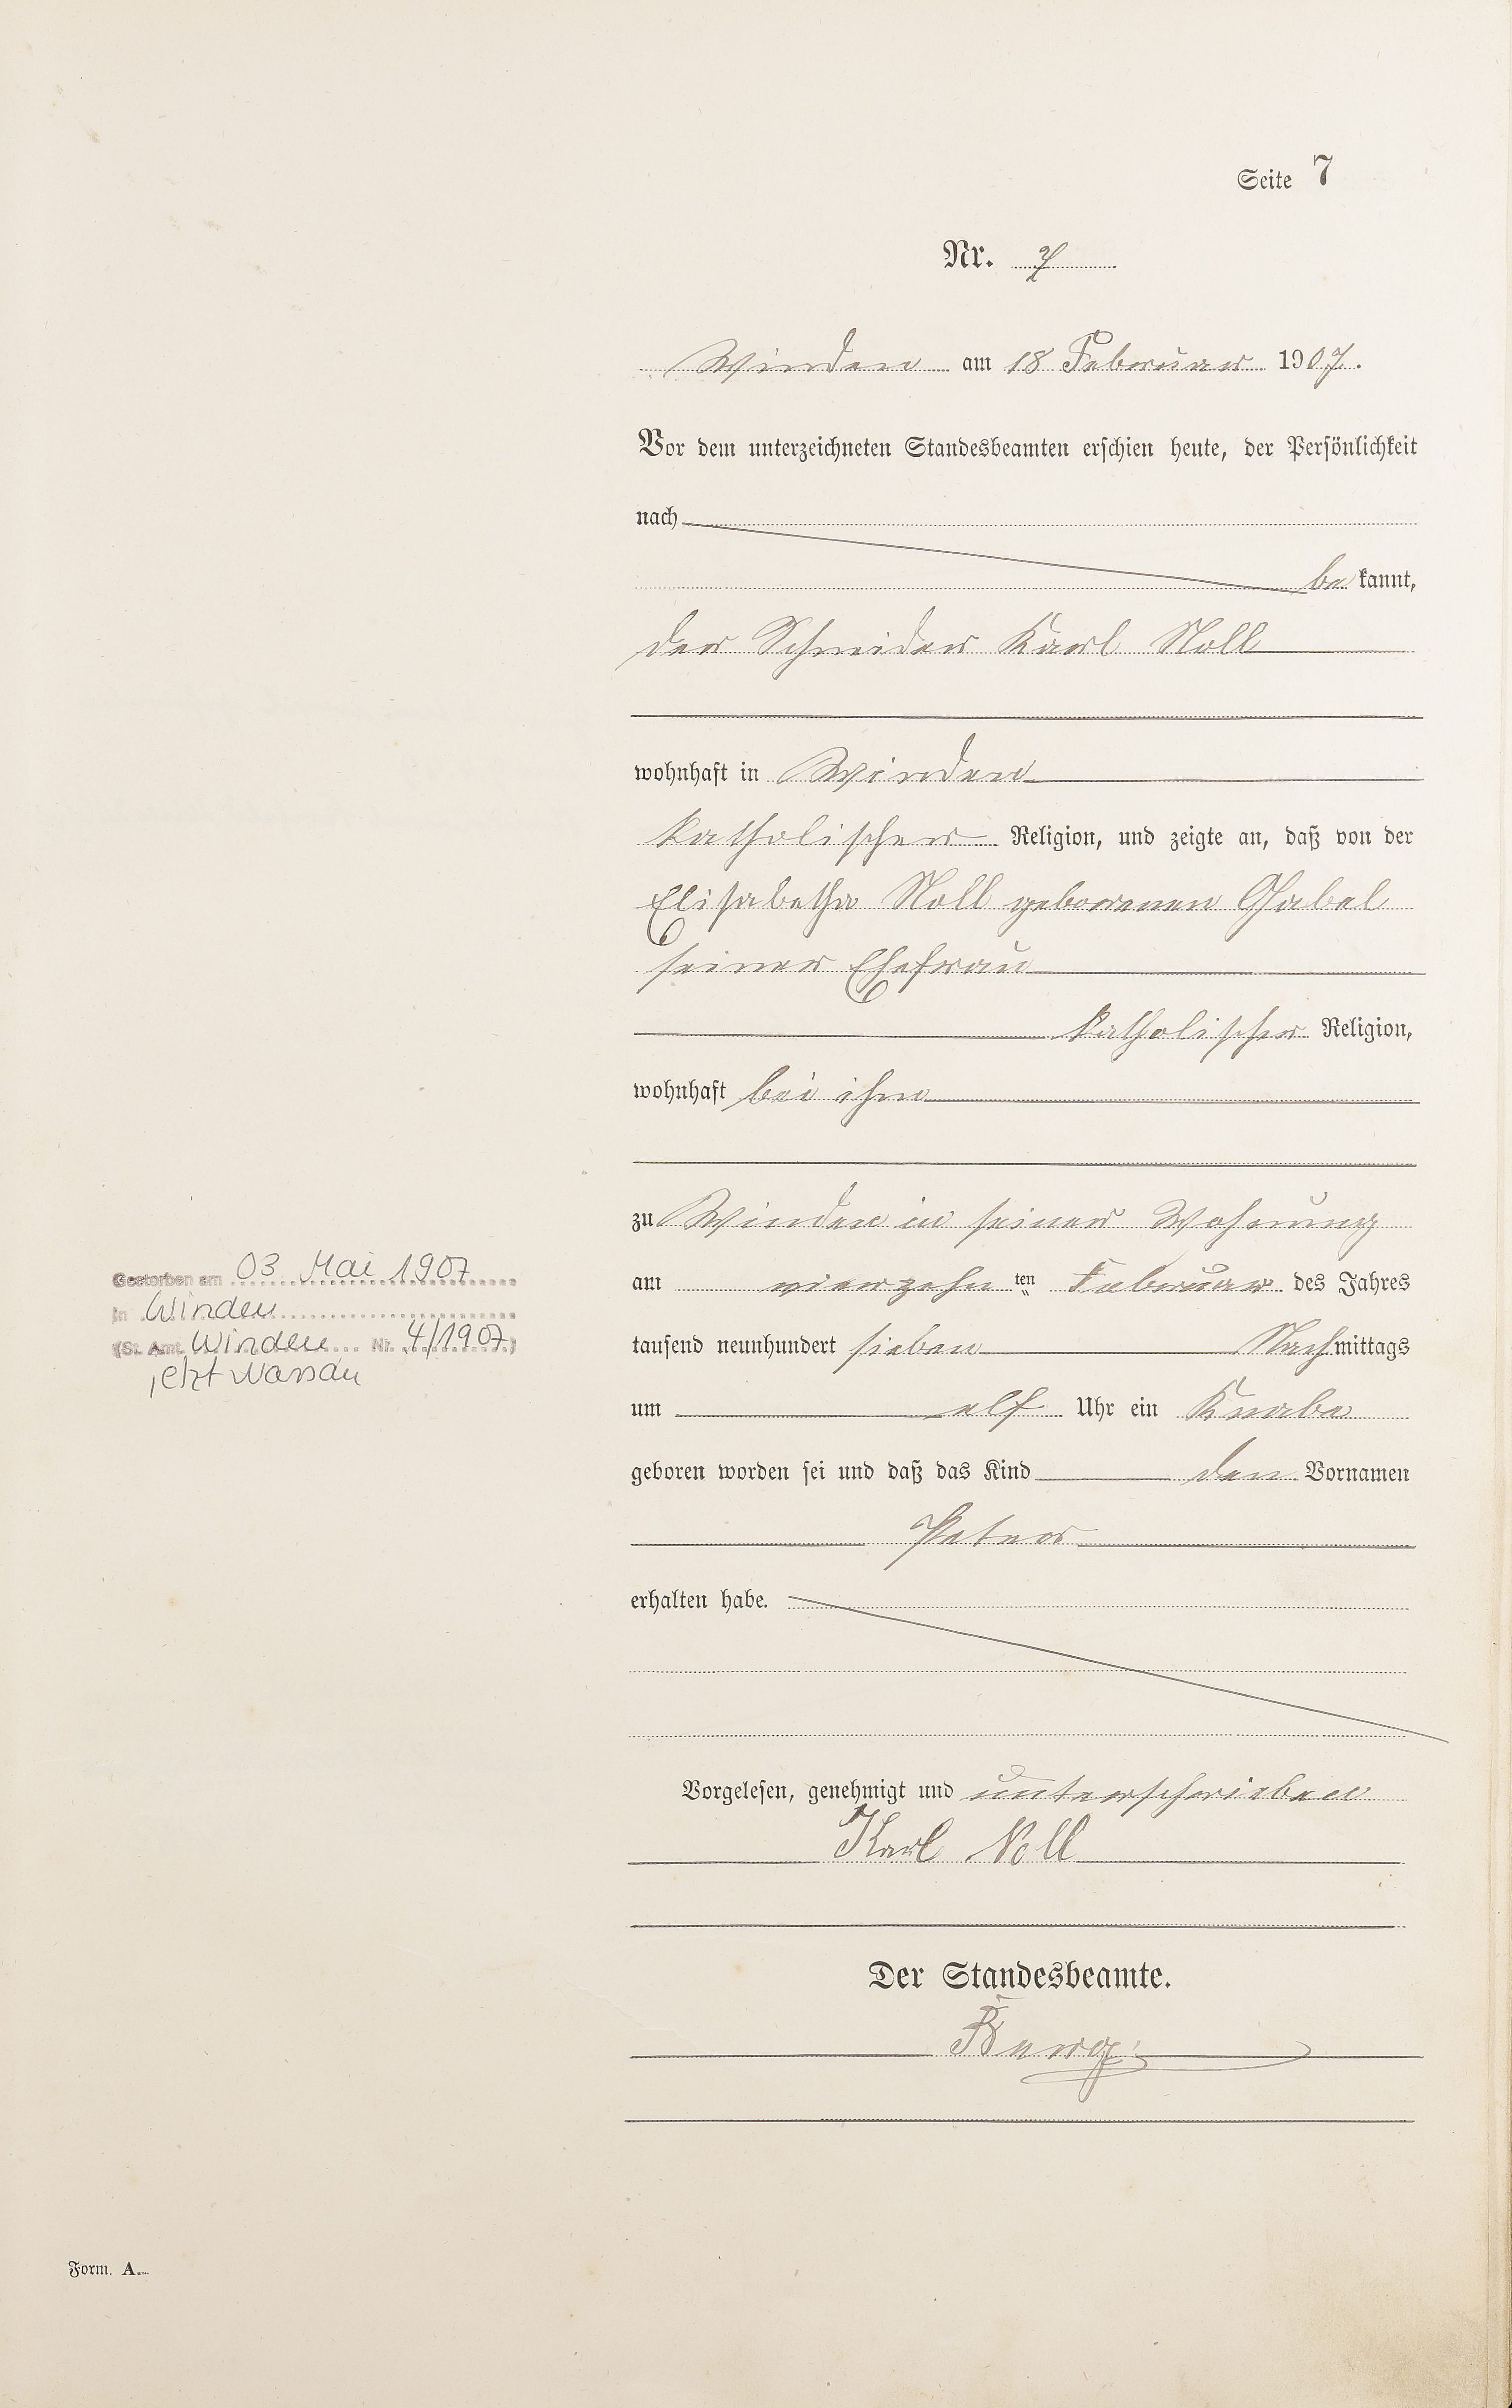 Seite 7
Nr. 7
Winden am 18 Februar 1907.
Vor dem unterzeichneten Standesbeamten erschien heute, der Persönlichkeit
nach
be kannt,
der Schneider Karl Noll
wohnhaft in Winden
katholischer Religion, und zeigte an, daß von der
Elisabetha Noll geborenen Gabel
seiner Ehefrau
katholischer Religion,
wohnhaft bei ihm
zu Winden in seiner Wohnung
am vierzehn ten Februar des Jahres
tausend neunhundert sieben Nachmittags
um elf Uhr ein Knabe
geboren worden sei und daß das Kind den Vornamen
Peter
erhalten habe.
Vorgelesen, genehmigt und unterschrieben
Karl Noll
Der Standesbeamte.
Gestorben am 03. Mai 1907
in Winden
(St. Amt Winden Nr. 4/1907)
jetzt Nassau
Form. A.